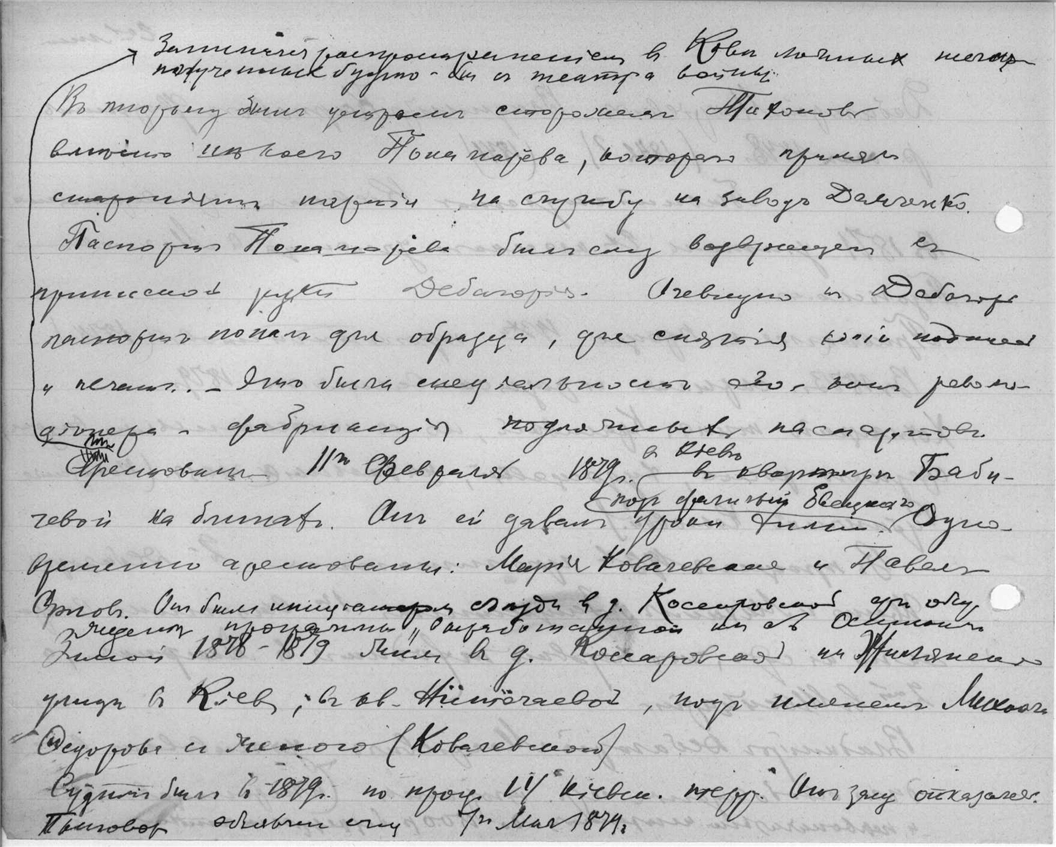 Занимался распространением в Киеве личных
полученных будто-бы с театра войны.
В тюрьму был устроен сторожем Тихонов
вместо некоего Пономарева, которого приняли
на службу на завод Демченко.
Паспорт Пономарева был ему возвращен с
припиской руки Дебагорія. Очевидно и Дебагорі
паспорт попал для образца, для снятія копій подписей
и печати. - Это была спеціальность его, как револю-
ціонера - фабрикація подложных паспортов.
Арестован 11го Февраля 1879г. в Кіеве в квартире Баби-
чевой на
под фамиліей
Он ей давал уроки Одно-
временно арестованы: Марія Ковалевская и Павел
Орлов. Он был инициатором съезда в д. Коссаровской при обсу
ждении программы, выработанной им с Осинским
Зимой 1878-1879 жил в д. Коссаровской на Жилянской
улице в Кіеве, в кв. , под именем Михаила
Федорова с женою (Ковалевской)
Судим был в 1879г. по проц. Кіевск. терр. От защ. отказался.
Приговор объявлен ему Мая 1879г.